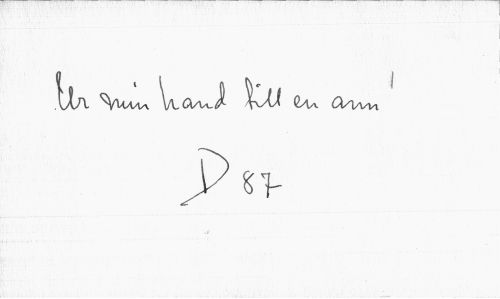 Ur min hand till en ann'
D 87